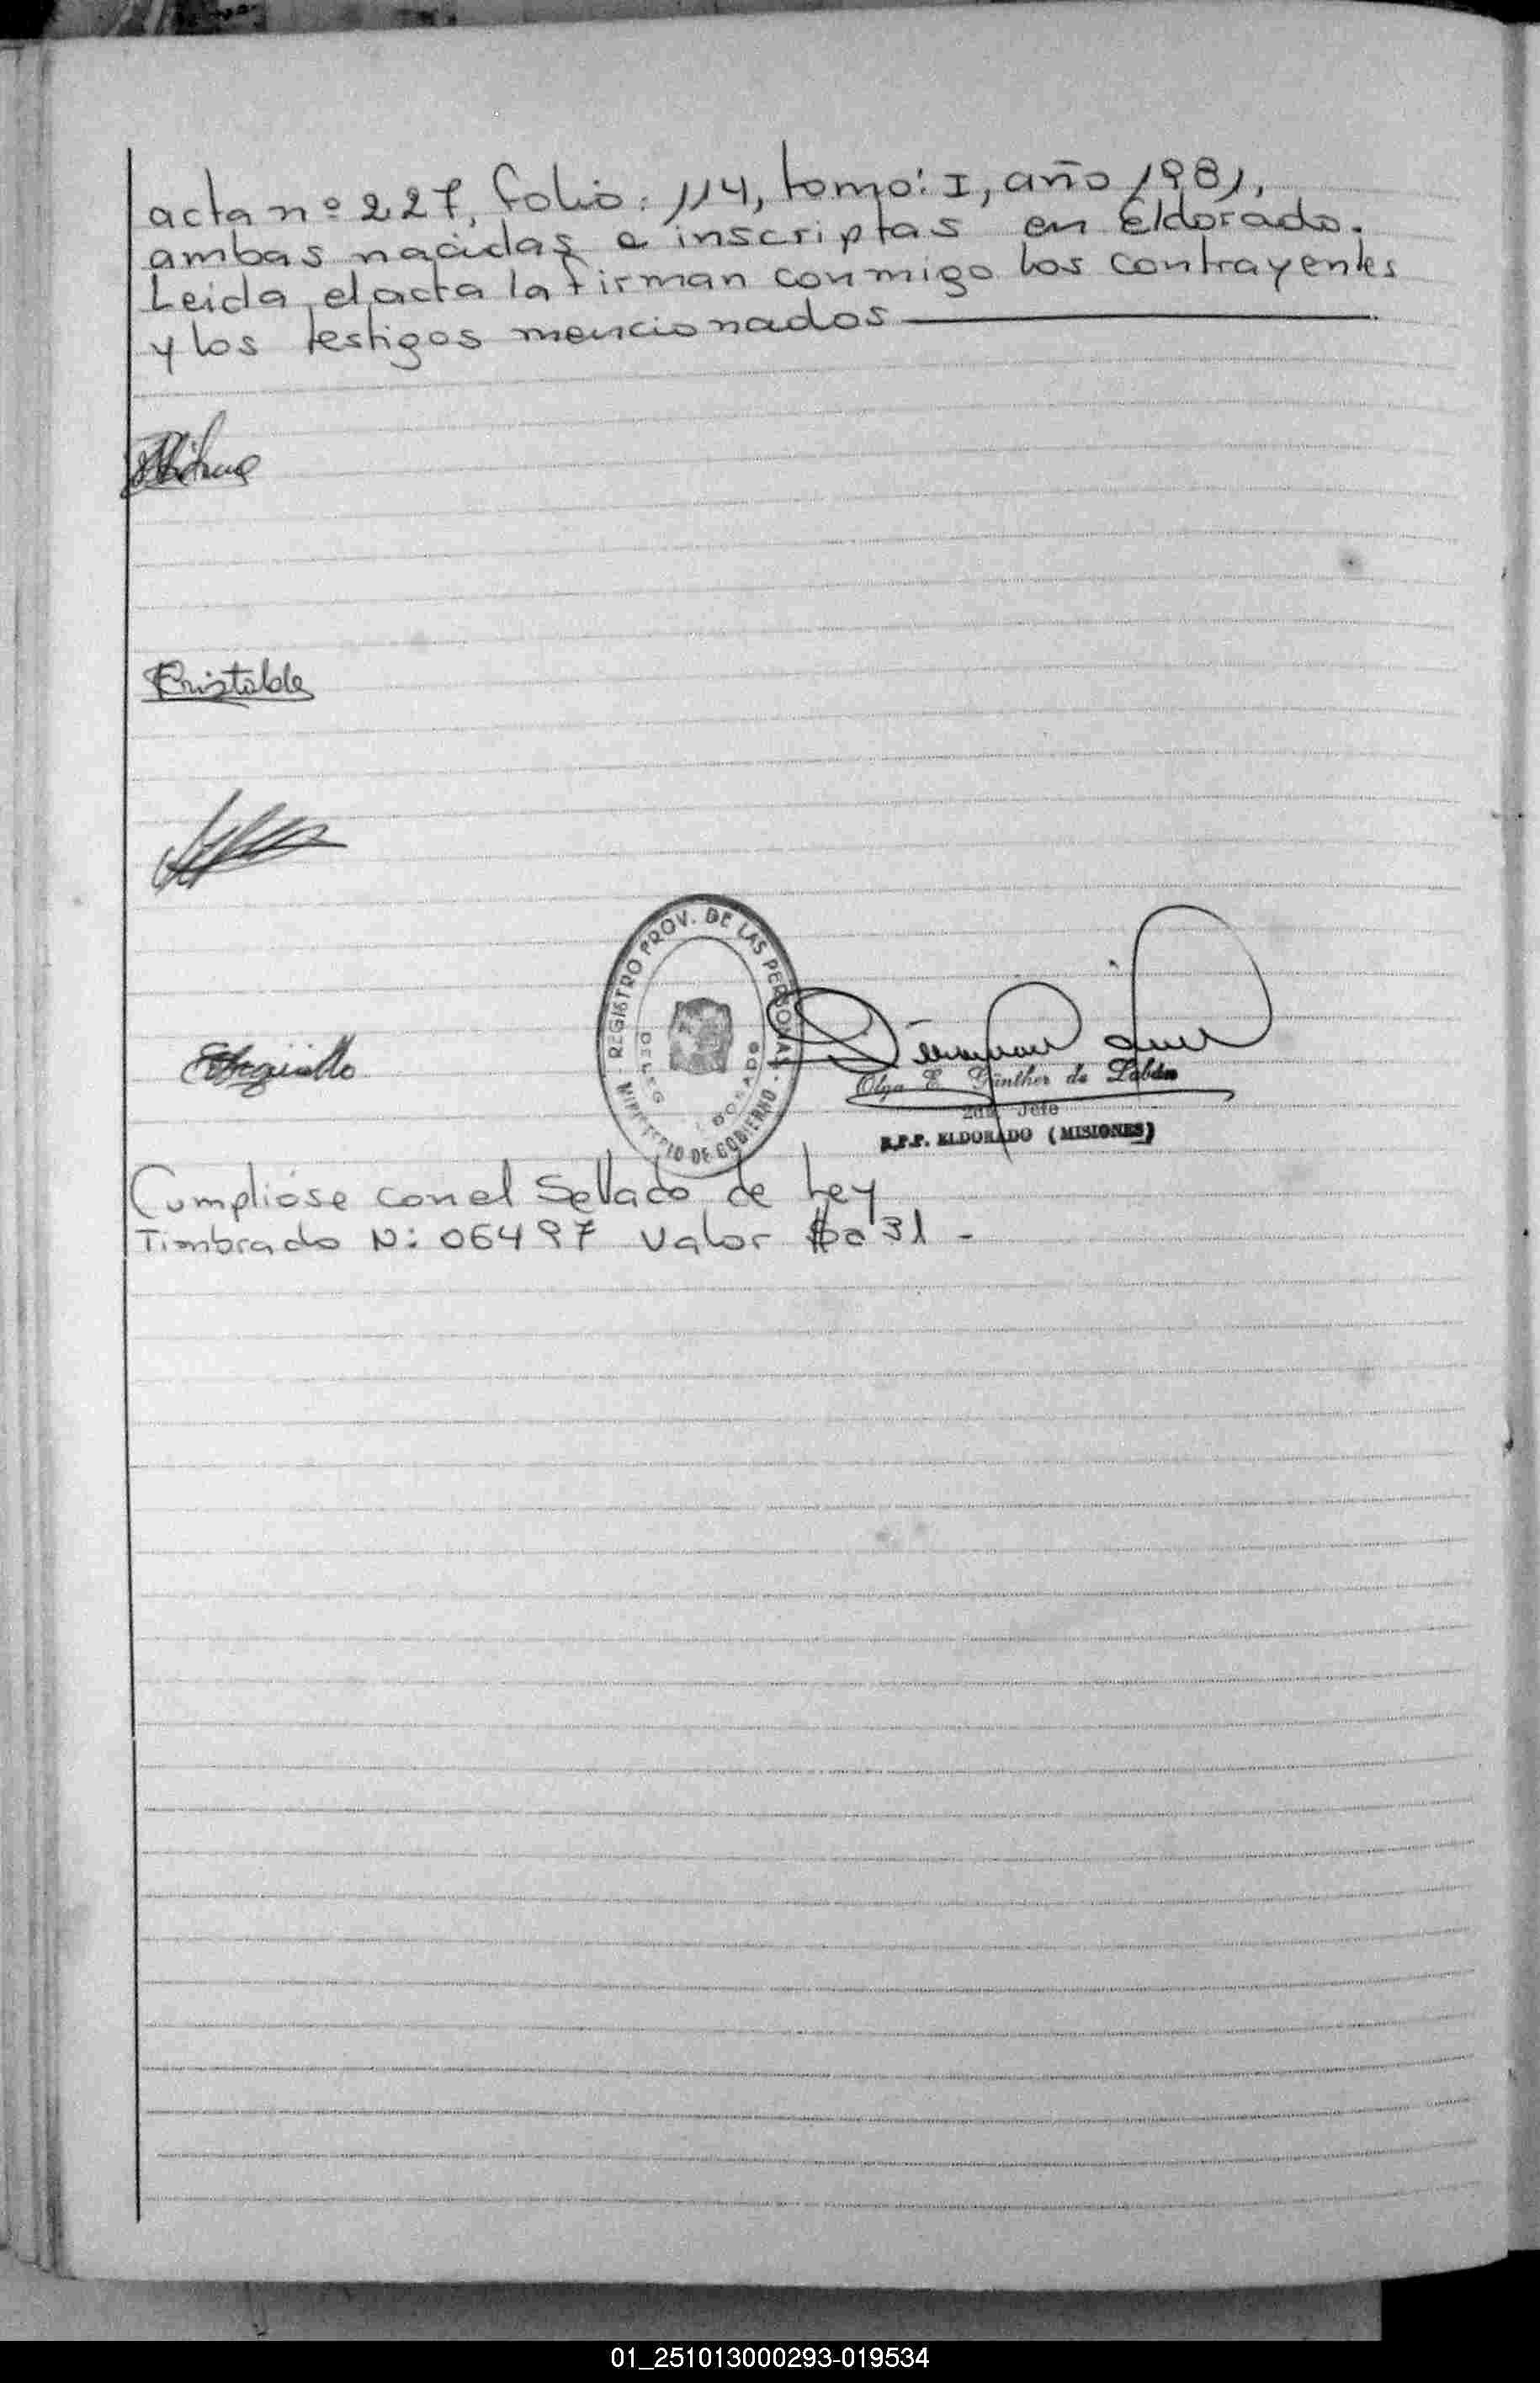 acta nº 227, folio: 114, tomo: I, año 1981,
ambas nacidas e inscriptas en Eldorado.
Leida el acta la firman conmigo los contrayentes
y los testigos mencionados
Cristaldo
Argüello
REGISTRO PROV. DE LAS PERSONAS
DELEG. ELDORADO
MINISTERIO DE GOBIERNO
Olga E. Günther de Labán
2da. Jefe
R.P.P. ELDORADO (MISIONES)
Cumplióse con el Sellado de Ley
Timbrado N: 06497 Valor $a 31 -
01_251013000293-019534